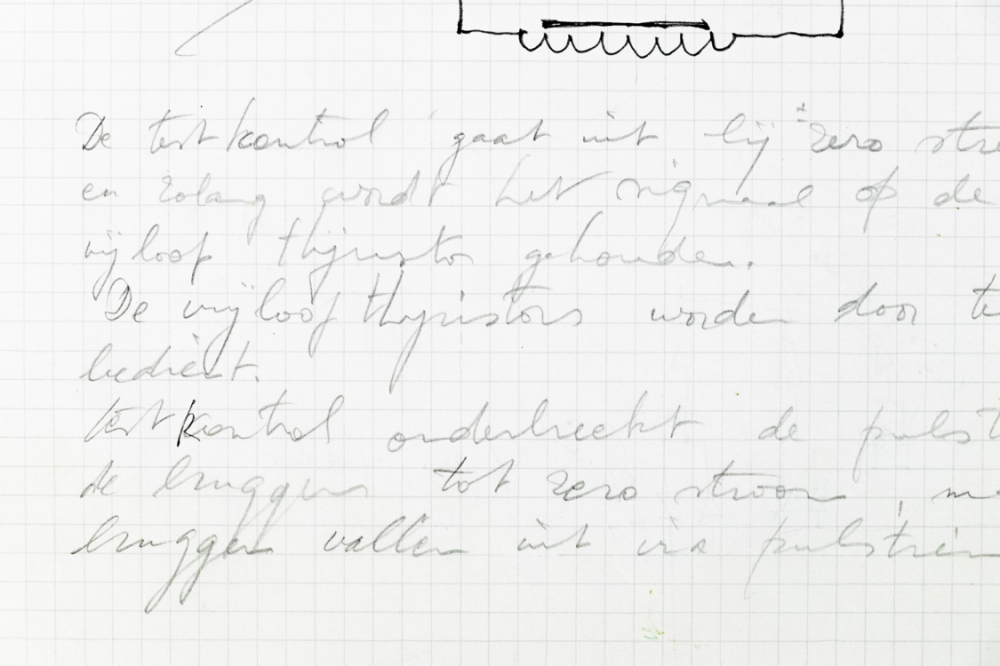 De testkontrol gaat uit bij ± zero stro
en zolang wordt het signaal op de
vrijloop thijristor gehouden.
De vrijloop thijristors worden door te
bedient.
testkontrol onderbreekt de pulst
de bruggen tot zero stroom, me
bruggen vallen uit via pulstrein